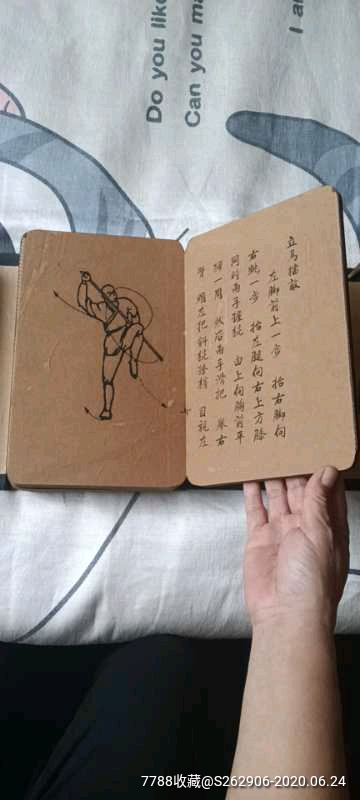 立马擂敌
左脚前上一步 抬右脚向
右跳一步 抬左腿向右上方膝
同时两手握棍 由上向胸前平
绕一周 然后两手滑把 举右
臂 缩左把斜棍捺档 目视左
Do you like
Can you ma
I a
7788收藏@S262906-2020.06.24